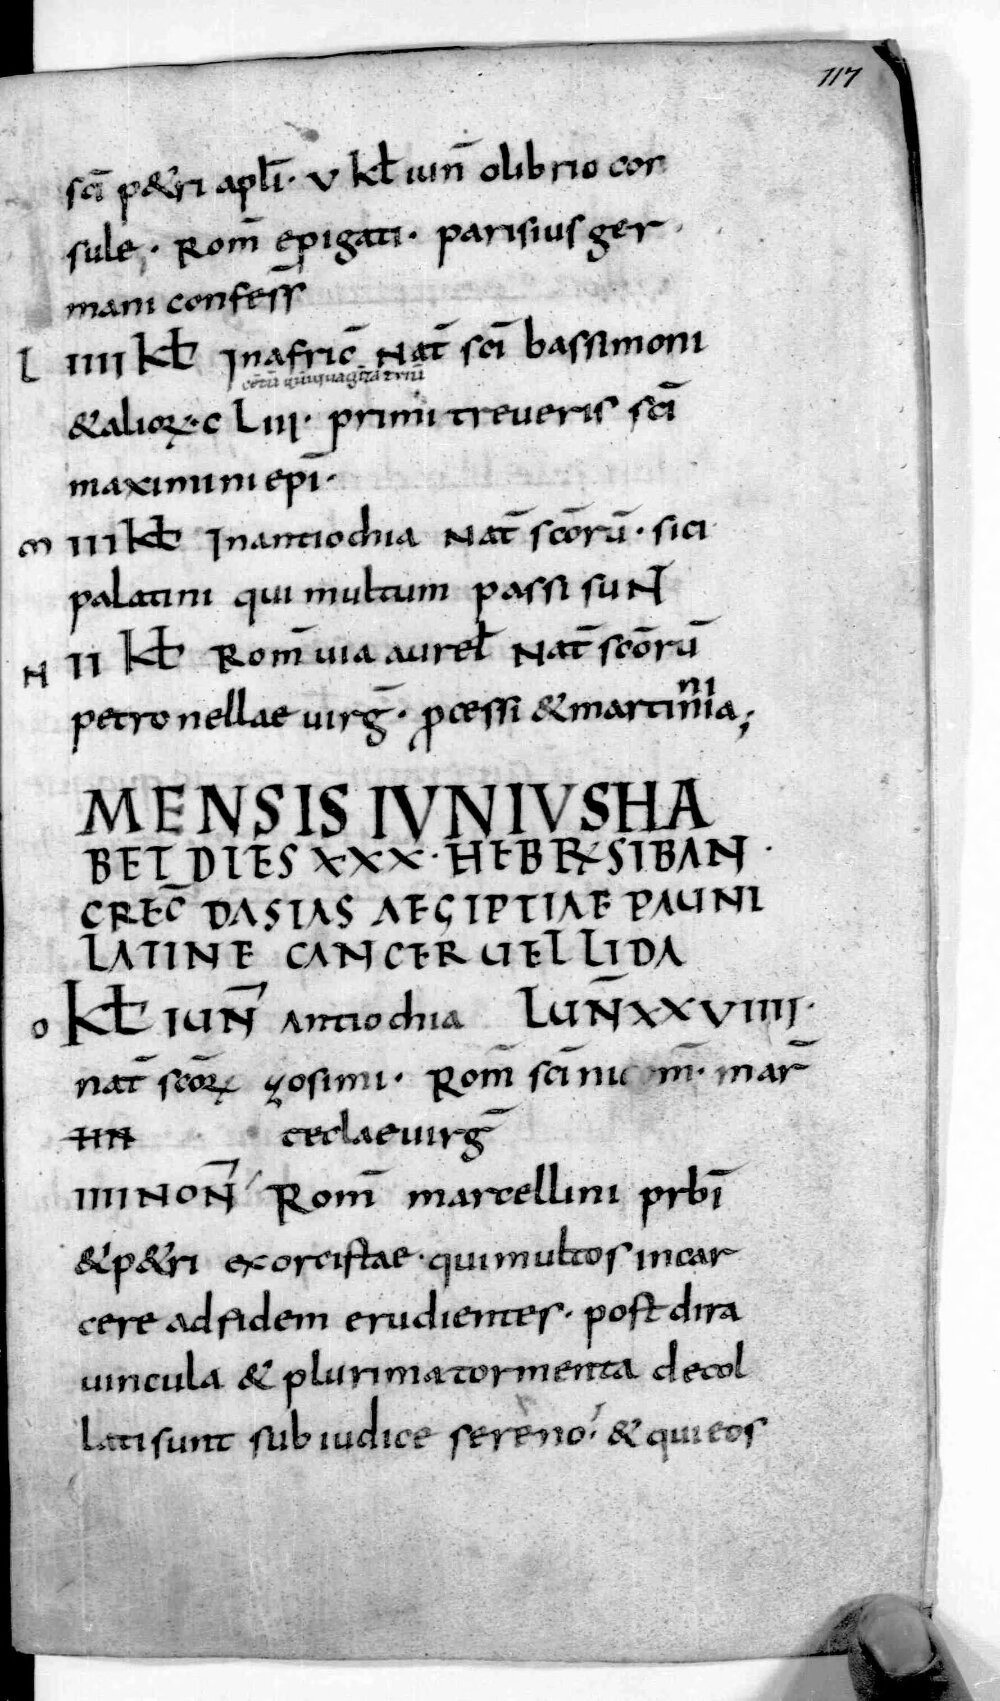 117
sc̄i p&ri apl̄i· v kł iun̄ olibrio cor
sule· Rom̄ epigati· parisius ger
mani confess̄
l IIII kł In afric̄ Nat̄ sc̄i bassi moni
cētū quīquagīta triū
& alioꝝ· c LIII· primi treveris sc̄i
maximini ep̄i·
m III kł In antiochia Nat̄ sc̄orū· sici
palatini qui multum passi suN
N II kł Rom̄ uia aurel̄ Nat̄ sc̄orū
ni
petronellae uirḡ· ꝓcessi & martinia;
MENSIS IVNIVS HA
BET DIES XXX· HEBRꝜ SIBAN·
GREC̄ DASIAS AEGIPTIAE PAUNI
LATINE CANCER UEL LIDA
o kł IUN̄ Antiochia LUN̄ XXVIIII·
nat̄ sc̄oꝝ zosimi· Rom̄ sc̄i nicom̄· mar̄
IIN teclae uirḡ
IIII NON̄ Rom̄ marcellini prb̄i
& p&ri exorcistae· qui multos in car
cere ad fidem erudientes· post dira
uincula & plurima tormenta decol
lati sunt sub iudice sereno· & qui eos